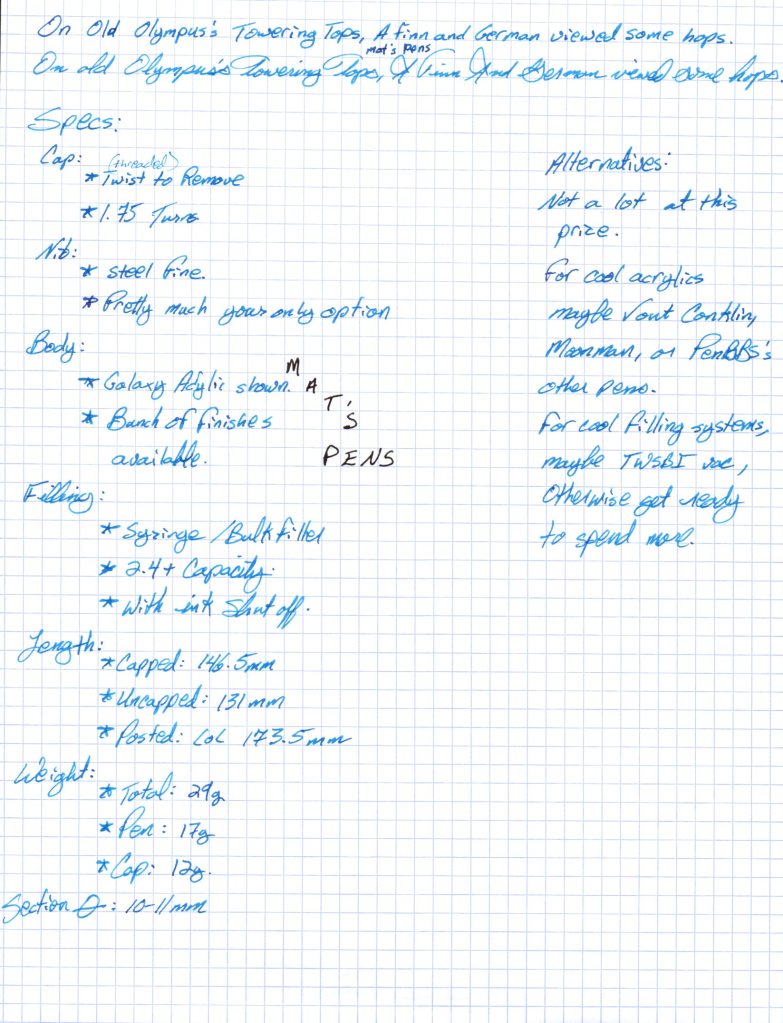 On Old Olympus's Towering Tops, A Finn and German viewed some hops.
mat's pens
On old Olympus's Towering Tops, A Finn And German viewed some hops.
Specs:
Cap: (threaded)
* Twist to Remove
* 1.75 Turns
Nib:
* Steel Fine.
* Pretty much your only option
Body:
* Galaxy Acylic shown.
* Bunch of finishes
available.
MAT'S
PENS
Filling:
* Syringe / Bulk filler
* 2.4+ Capacity.
* With ink Shut off.
Length:
* Capped: 146.5mm
* Uncapped: 131mm
* Posted: LoL 173.5mm
Weight:
* Total: 29g
* Pen: 17g
* Cap: 12g.
Section Ø: 10-11mm
Alternatives:
Not a lot at this
prize.
For cool acrylics
maybe Conklin,
Moonman, or PenBBS's
other pens.
For cool filling systems,
maybe TWSBI vac,
Otherwise get ready
to spend more.